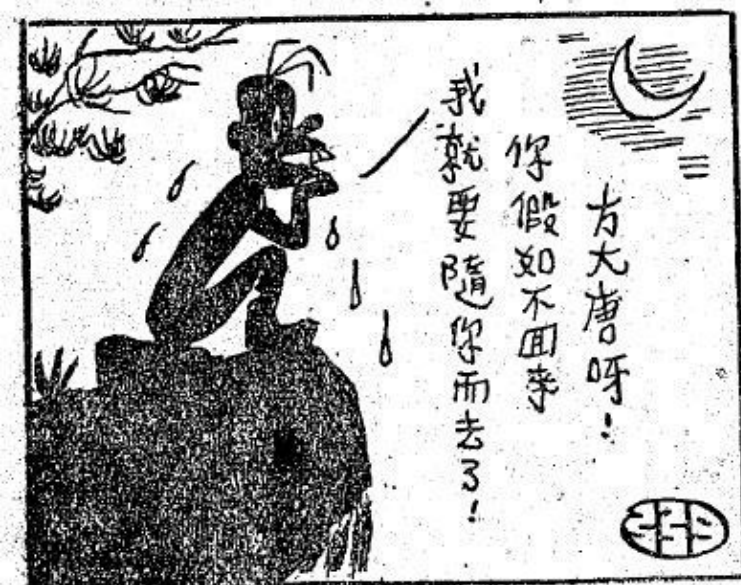 方大唐呀!
你假如不回来
我就要隨你而去了!